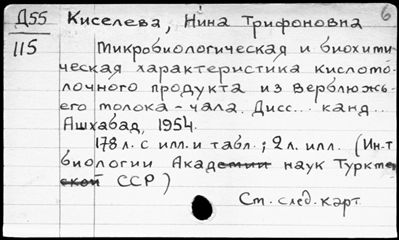 Д55 Киселева, Нина Трифоновна 6
115
Микробиологическая и биохими
ческая характеристика кисломо
лочного продукта из верблюжь-
его молока - чала. Дисс... канд...
Ашхабад, 1954.
178 л. с илл. и табл.; 2 л. илл. (Ин-т
биологии Академии наук Туркме
ской ССР)
См. след. карт.